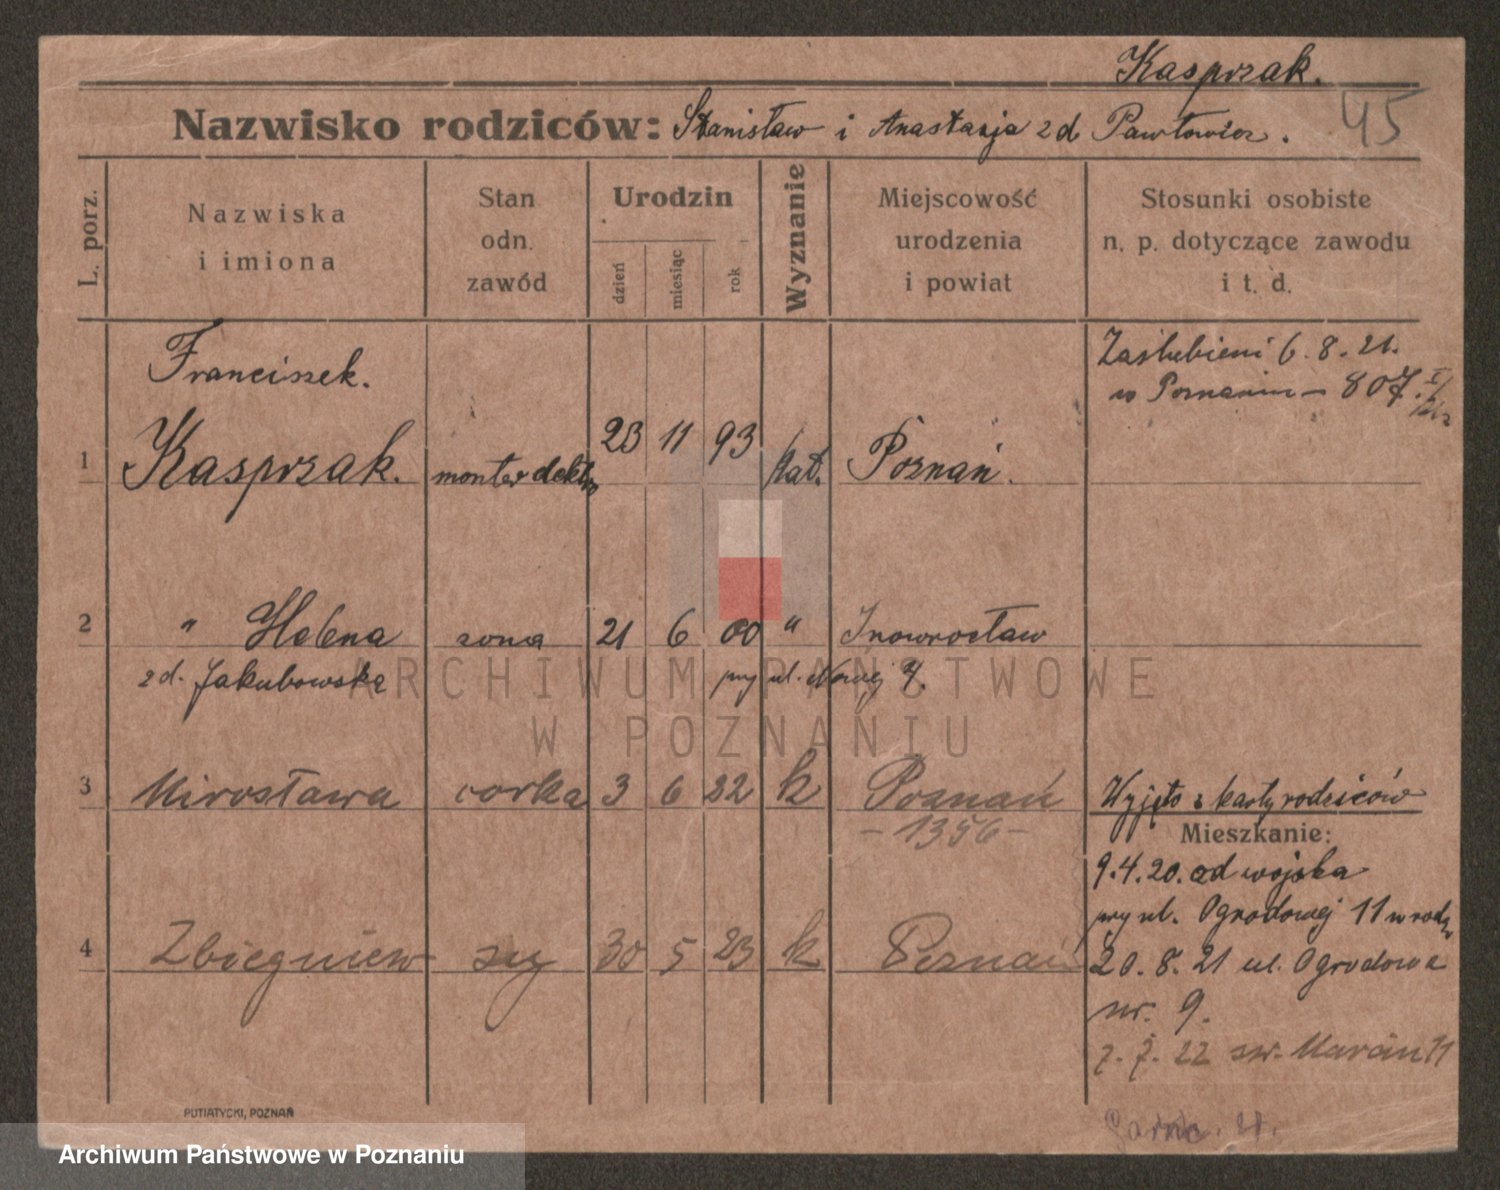 Kasprzak.
Nazwisko rodziców: Stanisław i Anastazja zd Pawłowicz.
45
L. porz.
Nazwiska
i imiona
Stan
odn.
zawód
Urodzin
dzień
miesiąc
rok
Wyznanie
Miejscowość
urodzenia
i powiat
Stosunki osobiste
n. p. dotyczące zawodu
i t. d.
Franciszek.
Zaślubieni 6.8.21.
w Poznaniu - 807.
1 Kasprzak. monter elektr 23 11 93 kat. Poznań.
2 " Helena żona 21 6 00 " Inowrocław
zd. Jakubowska przy ul. Nowej 7.
3 Mirosława corka 3 6 22 k Poznań Wyjęto z karty rodziców
- 1356 -
Mieszkanie:
9.4.20. od wojska
przy ul. Ogrodowej 11 w rodz
4 Zbiegniew sy 30 5 23 k Poznań
20.8.21 ul. Ogrodowa
nr. 9.
7.7.22 św. Marcin 11
PUTIATYCKI, POZNAŃ
ARCHIWUM PAŃSTWOWE
W POZNANIU
Archiwum Państwowe w Poznaniu